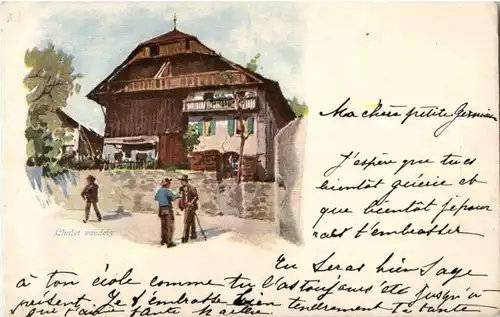 Chalet vaudois
Ma chère petite Germaine
J'espère que tu es
bientôt guérie et
que bientôt je pour
rais t'embrasser
Tu seras bien sage
à ton école comme tu l'as toujours été jusqu'à
présent. Je t'embrasse bien tendrement Ta tante
qui t'aime